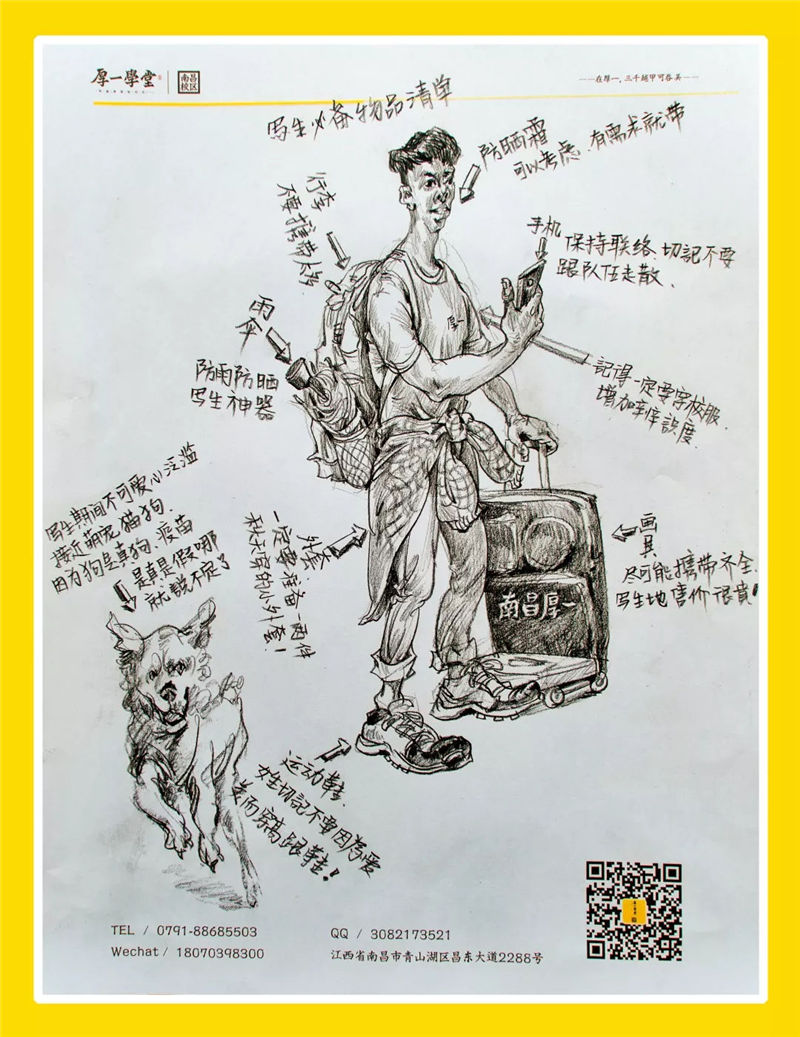 厚一學堂
南昌
校区
——在厚一,三千越甲可吞吴——
写生必备物品清单
防晒霜
可以考虑、有需求就带
行李
不要携带太多
手机
保持联络、切記不要
跟队伍走散、
雨
伞
防雨防晒
写生神器
厚一
記得一定要穿校服、
增加辛倖誤度、
写生期间不可爱心泛滥
接近萌宠猫狗、
因为狗是真狗、疫苗
是真是假哪
就説不定了
外套:
一定要准备一两件
秋天穿的小外套!
画
具
尽可能携带齐全、
写生地售价很貴!
南昌厚一
运动鞋、
女生切記不要因为爱
美而穿高跟鞋!
TEL / 0791-88685503
QQ / 3082173521
Wechat / 18070398300
江西省南昌市青山湖区昌东大道2288号